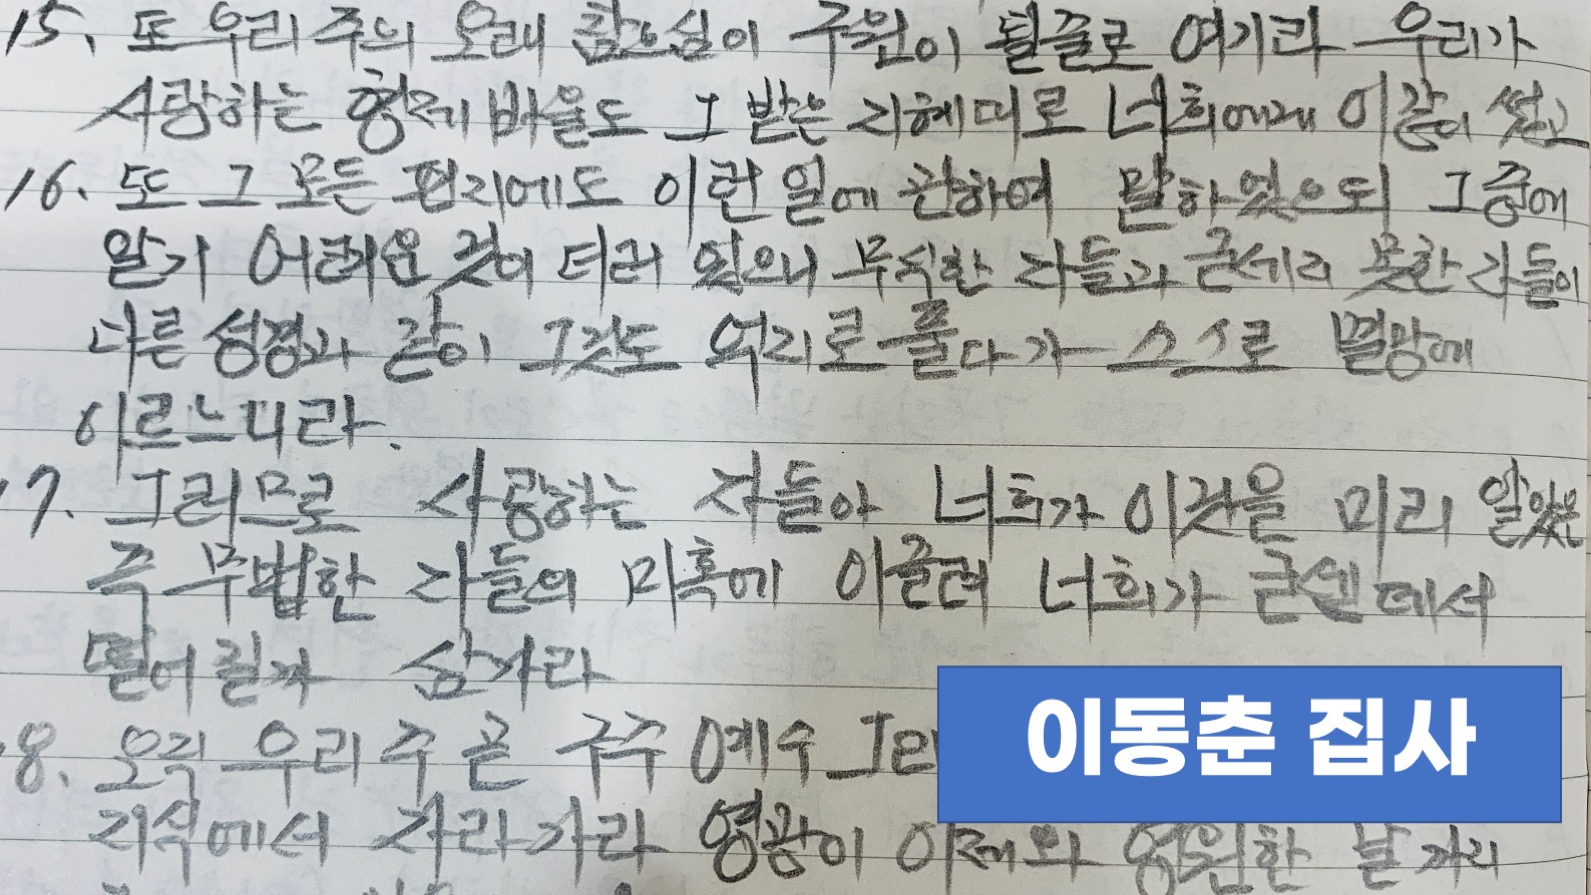 15. 또 우리 주의 오래 참으심이 구원이 될줄로 여기라 우리가
사랑하는 형제 바울도 그 받은 지혜대로 너희에게 이같이 썼고
16. 또 그 모든 편지에도 이런 일에 관하여 말하였으되 그 중에
알기 어려운 것이 더러 있으니 무식한 자들과 굳세지 못한 자들이
다른 성경과 같이 그것도 억지로 풀다가 스스로 멸망에
이르느니라.
17. 그러므로 사랑하는 자들아 너희가 이것을 미리 알았은
즉 무법한 자들의 미혹에 이끌려 너희가 굳센 데서
떨어질까 삼가라
18. 오직 우리 주 곧 구주 예수 그리
지식에서 자라가라 영광이 이제와 영원한 날까지
이동춘 집사